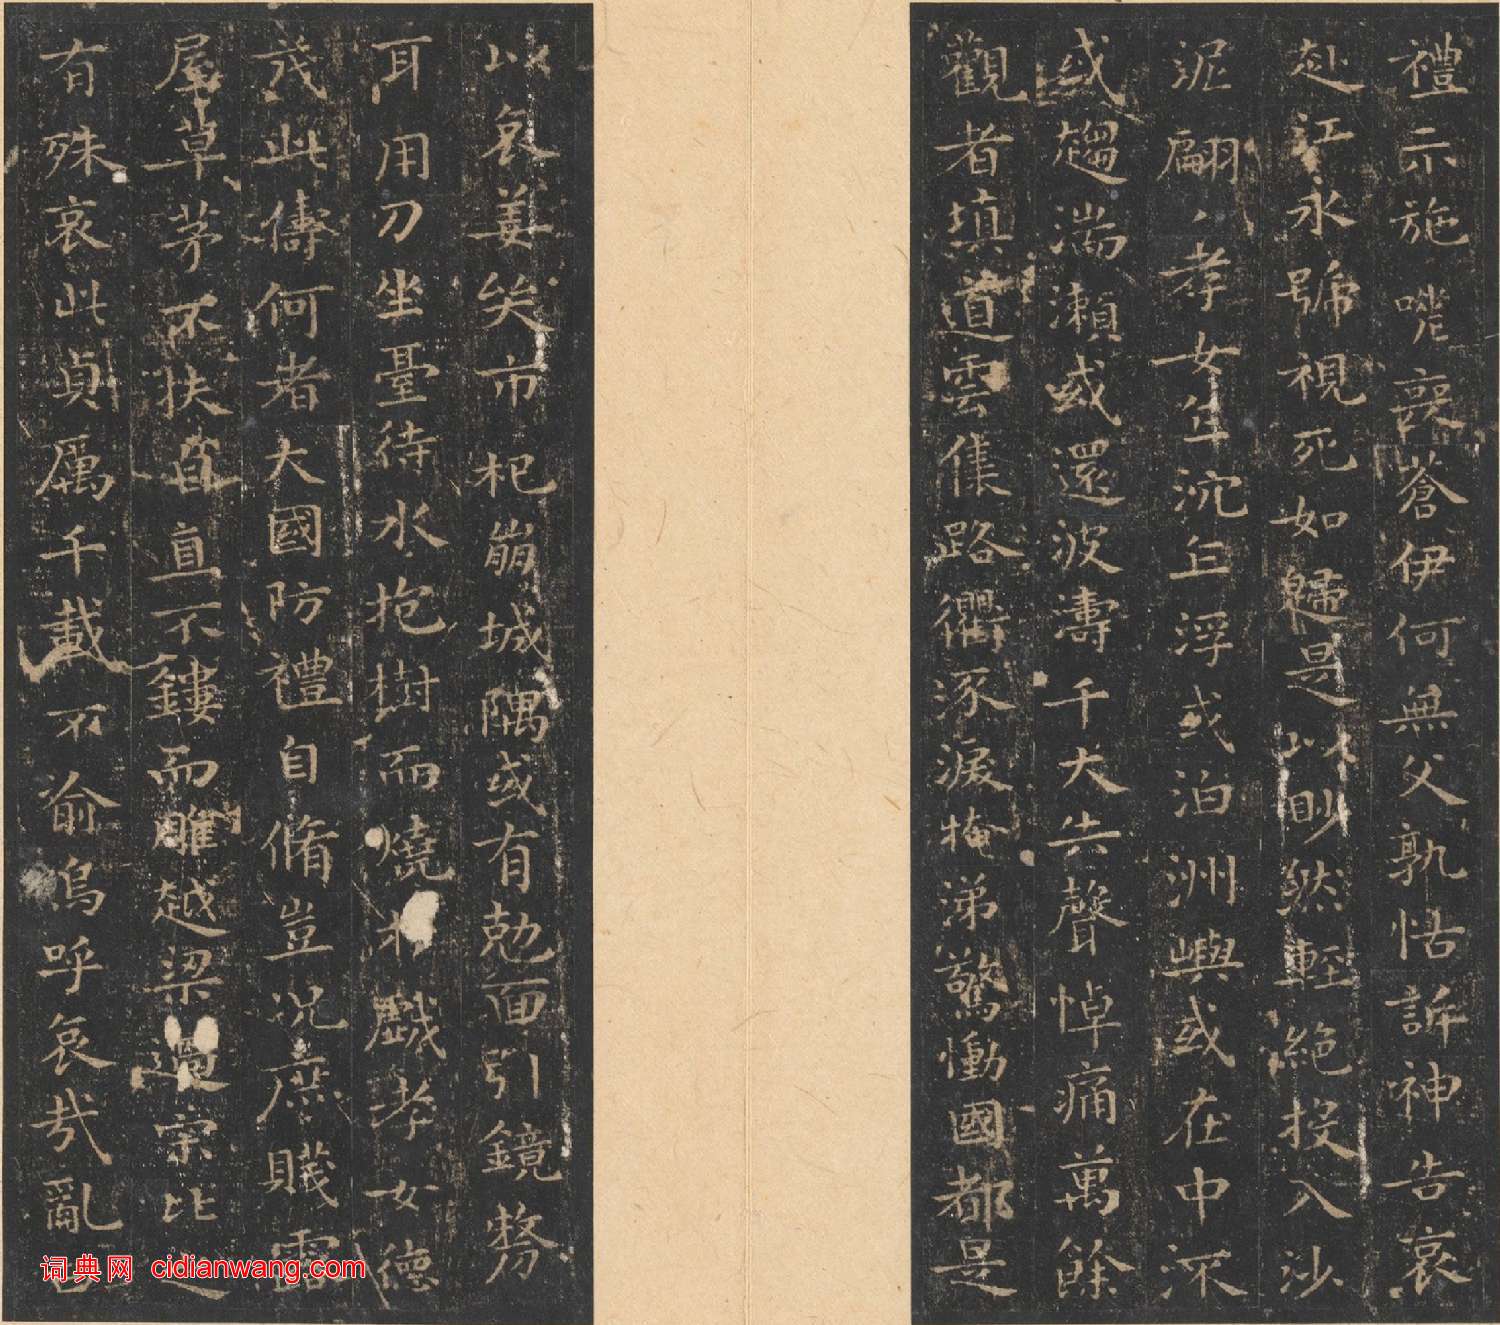 禮示施嗟喪蒼伊何無父孰怙訴神告哀
赴江永號視死如歸是以眇然輕絕投入沙
泥翩〻孝女乍沉乍浮或泊洲嶼或在中流
或趨湍瀨或還波濤千夫失聲悼痛萬餘
觀者填道雲集路衢流淚掩涕驚慟國都是
以哀姜哭市杞崩城隅或有剋面引鏡剺
耳用刀坐臺待水抱樹而燒於戲孝女德
茂此儔何者大國防禮自脩豈況庶賤露
屋草茅不扶自直不鏤而雕越梁過宋比之
有殊哀此貞厲千載不渝嗚呼哀哉亂曰
词典网 cidianwang.com